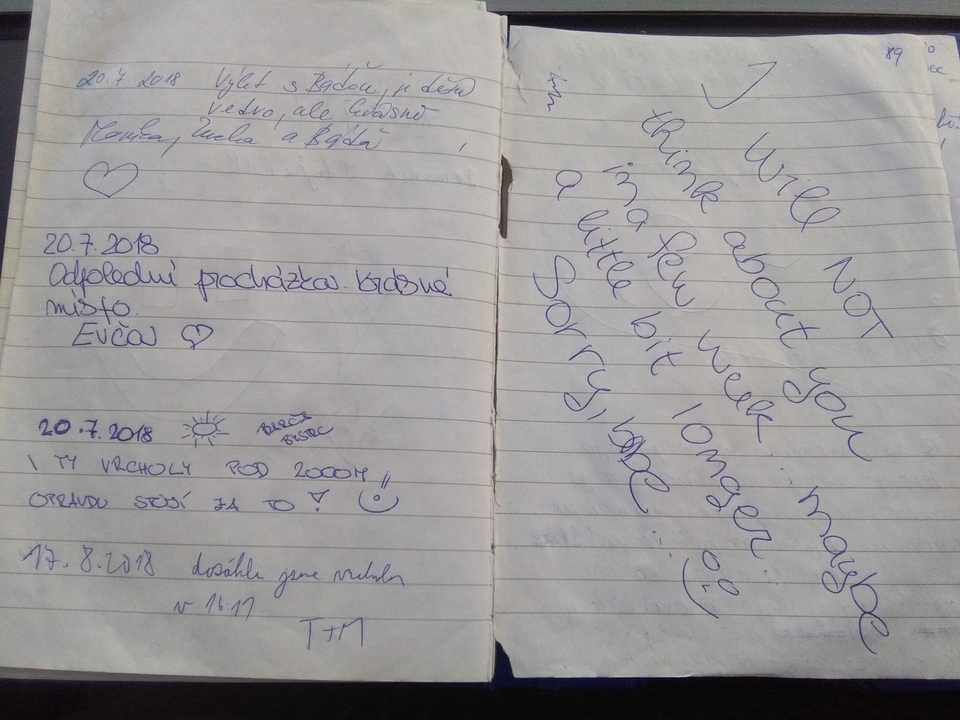 20.7.2018 Výlet s je
vedro, ale
a
20.7.2018
Odpolední procházka. Krásné
místo.
Evča
20.7.2018
I TY VRCHOLY POD 2000M
OPRAVDU STOJÍ ZA TO!
17.8.2018 dosáhli jsme vrcholu
v 16:11
T+M
89
I will NOT
think about you
in a few week... maybe
a little bit longer...
Sorry, babe...